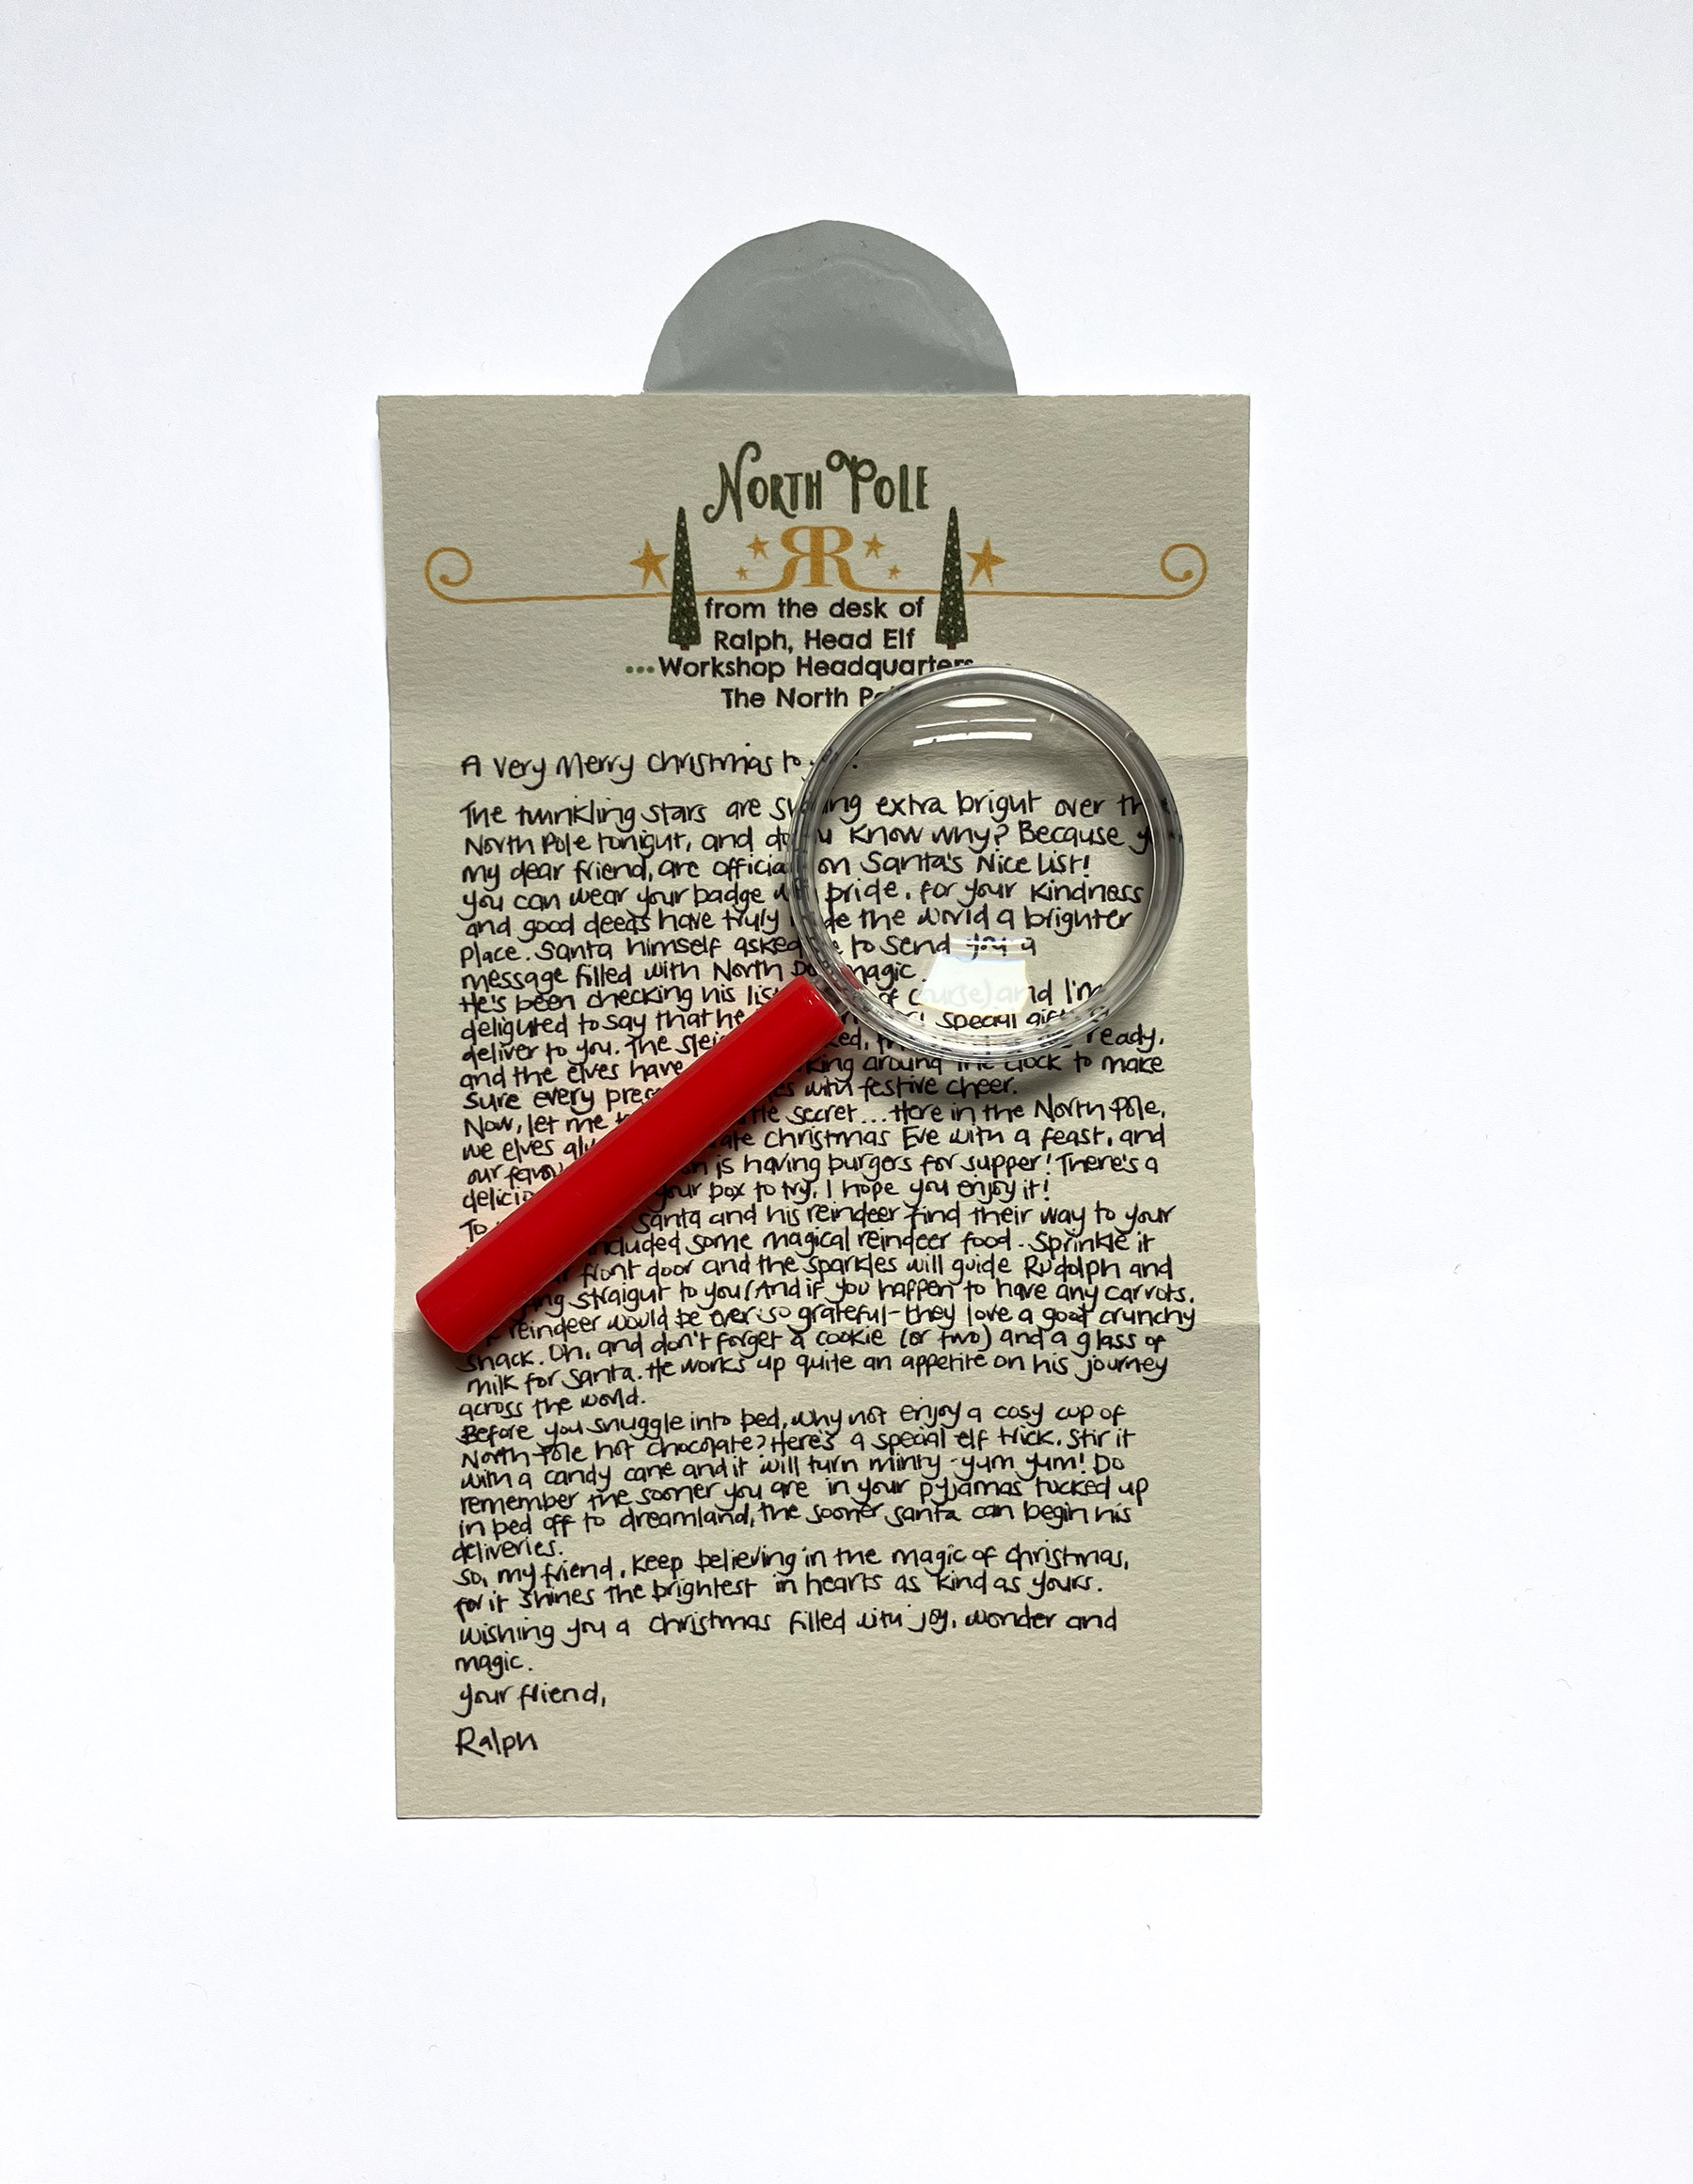 NORTH POLE
RR
from the desk of
Ralph, Head Elf
Workshop Headquarters
The North
A very Merry Christmas to
The twinkling stars are extra bright over
North Pole tonight, and know why? Because
my dear friend, are on Santa's Nice List!
you can wear your badge pride, for your kindness
and good deeds have truly the world a brighter
place. Santa himself asked to send you a
message filled with North magic
He's been checking his list of course) and I'm
delighted to say that he special
deliver to you. The ready,
and the elves have around the clock to make
sure every with festive cheer.
Now, let me secret... Here in the North Pole,
we elves Christmas Eve with a feast, and
our is having burgers for supper! There's a
your box to try, I hope you enjoy it!
To Santa and his reindeer find their way to your
included some magical reindeer food. Sprinkle it
front door and the sparkles will guide Rudolph and
straight to you! And if you happen to have any carrots,
reindeer would be ever so grateful - they love a good crunchy
snack. Oh, and don't forget a cookie (or two) and a glass of
milk for Santa. He works up quite an appetite on his journey
across the world.
Before you snuggle into bed, why not enjoy a cosy cup of
North Pole hot chocolate? Here's a special elf trick. Stir it
with a candy cane and it will turn minty - yum yum! Do
remember the sooner you are in your pyjamas tucked up
in bed off to dreamland, the sooner Santa can begin his
deliveries.
So, my friend, keep believing in the magic of Christmas,
for it shines the brightest in hearts as kind as yours.
Wishing you a Christmas filled with joy, wonder and
magic.
your friend,
Ralph